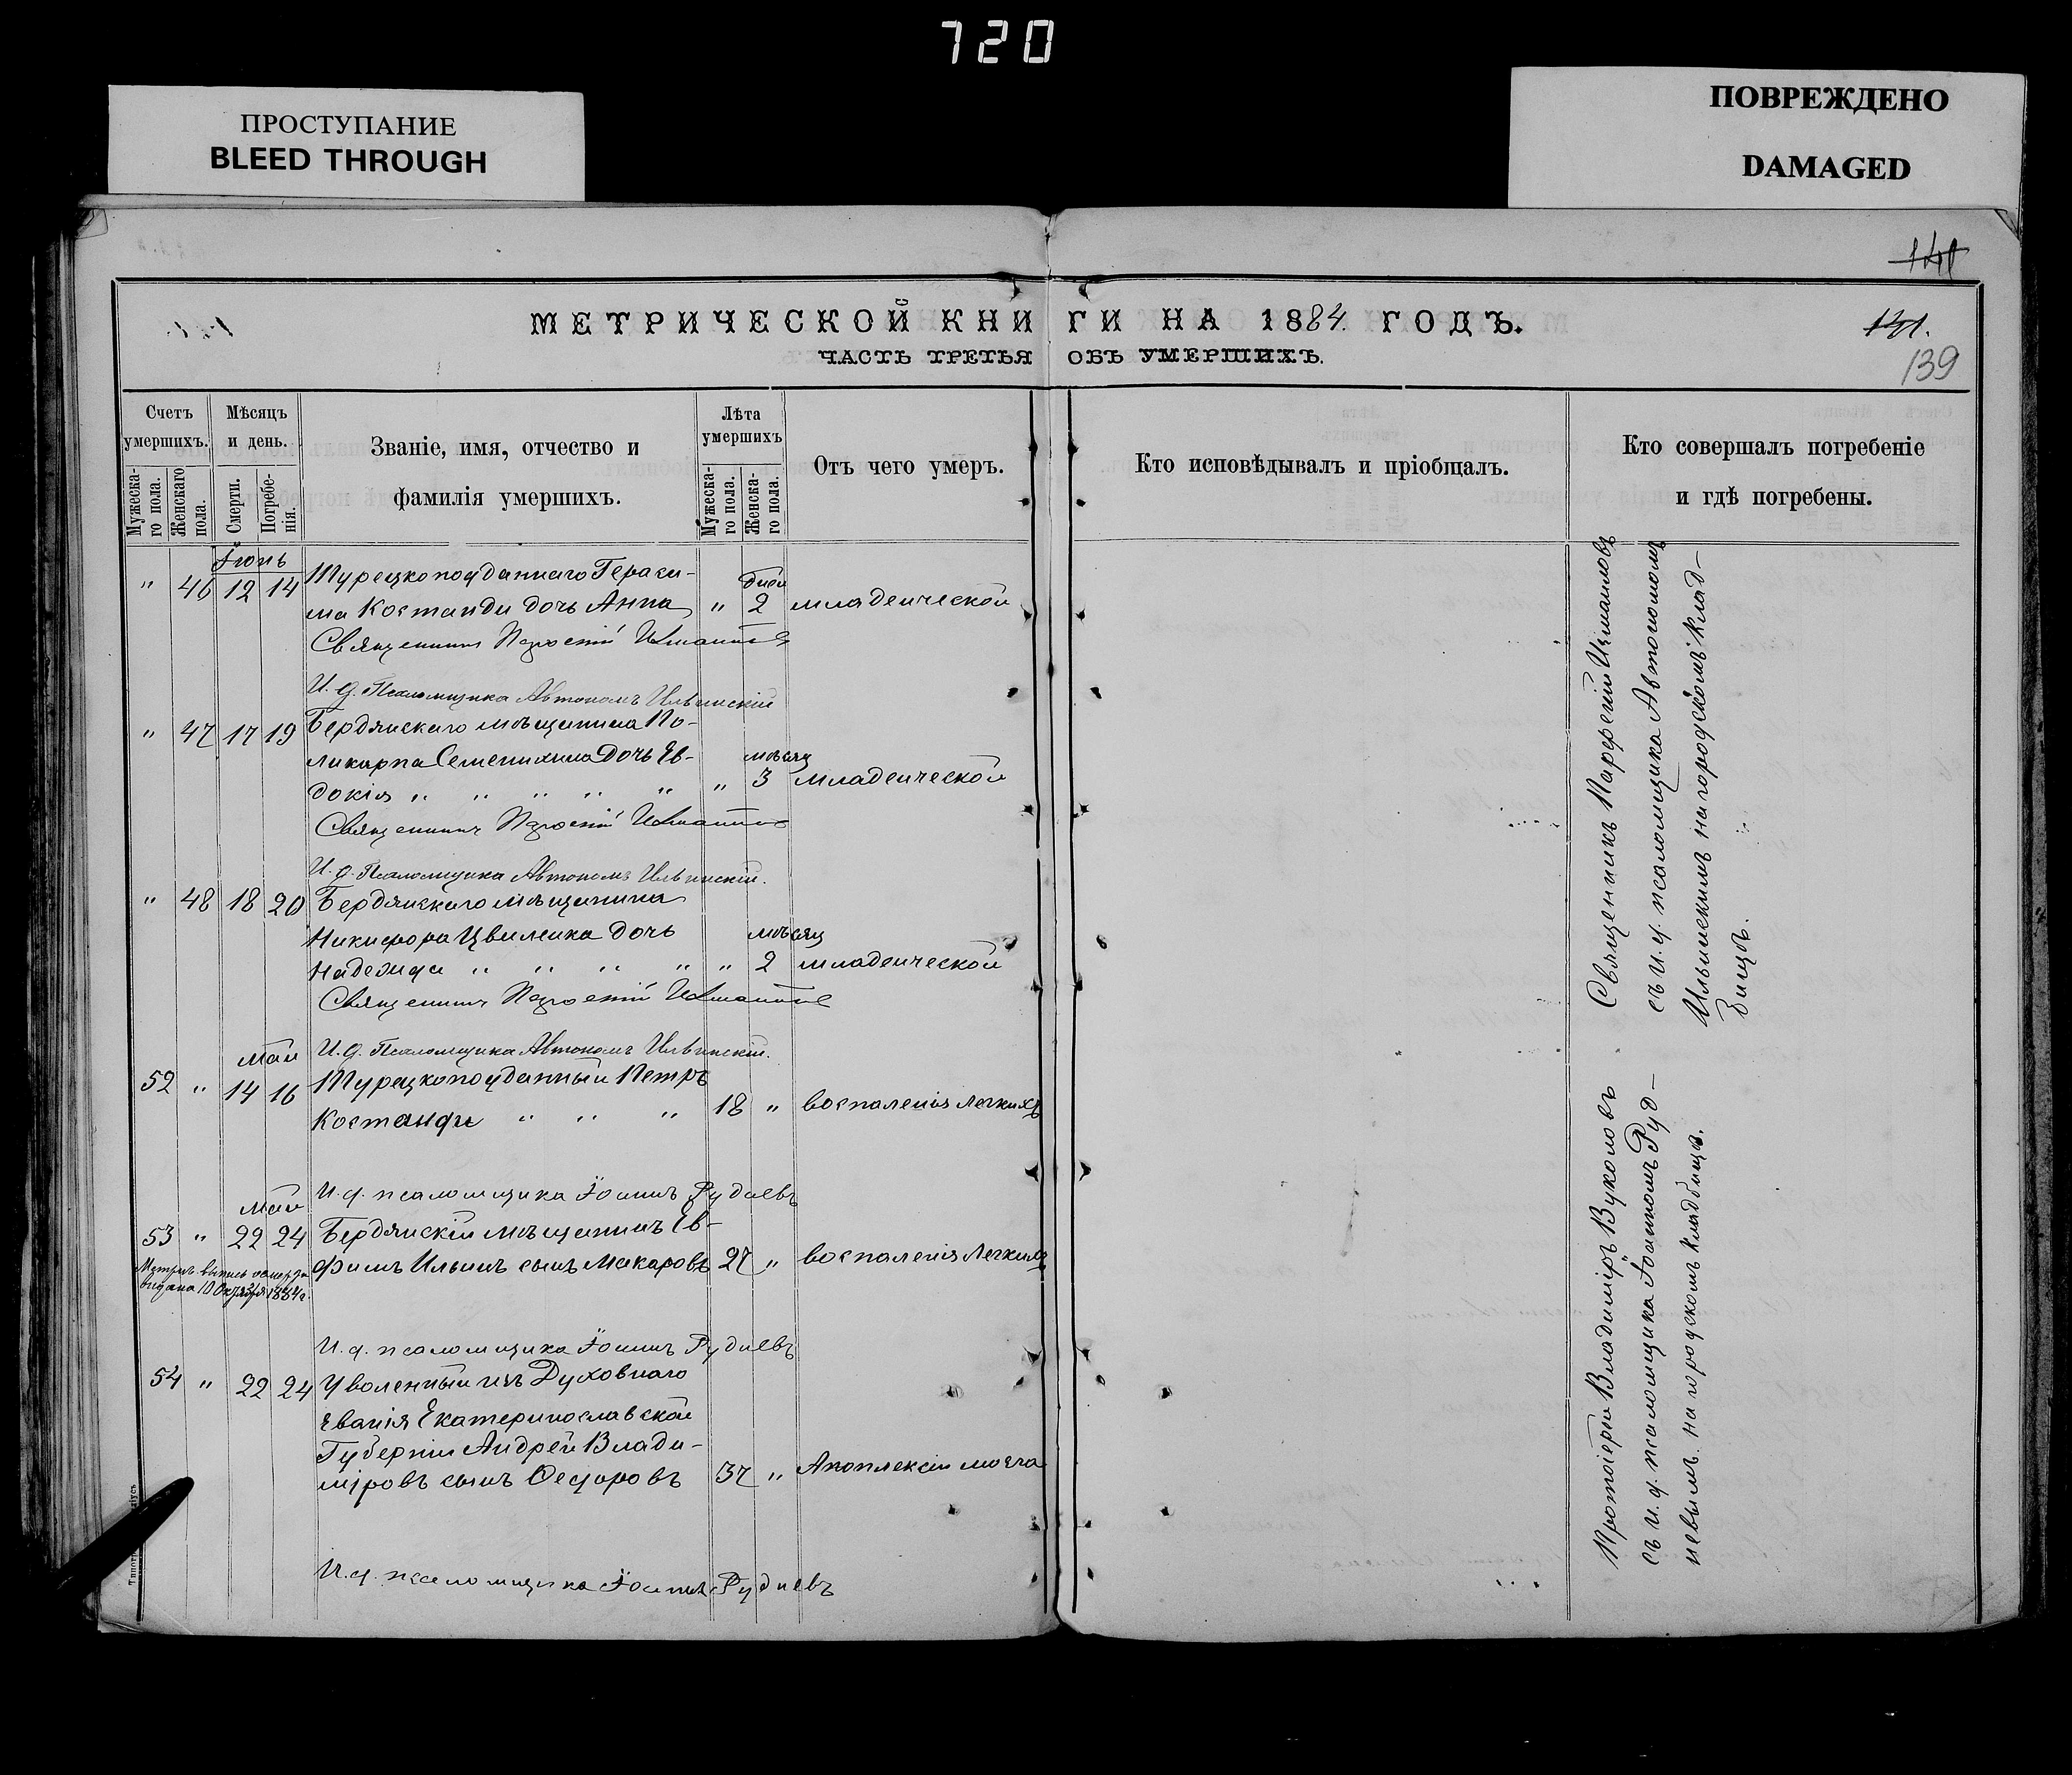 720
ПРОСТУПАНИЕ
BLEED THROUGH
ПОВРЕЖДЕНО
DAMAGED
МЕТРИЧЕСКОЙ КНИГИ НА 1884. ГОДЪ.
ЧАСТЬ ТРЕТЬЯ ОБЪ УМЕРШИХЪ.
139
Счетъ умершихъ.
Мужеска-го пола.
Женскаго пола.
Мѣсяцъ и день.
Смерти.
Погребе-нія.
Званіе, имя, отчество и
фамилія умершихъ.
Лѣта умершихъ
Мужеска-го пола.
Женска-го пола.
Отъ чего умеръ.
Кто исповѣдывалъ и пріобщалъ.
Кто совершалъ погребеніе
и гдѣ погребены.
Іюнь
" 46 12 14 Турецкоподданнаго Гераси-
ма Костанди дочь Анна " 2 дней младенческой
Священникъ Парѳеній
И. д. Псаломщика Автономъ Ильинскій
" 47 17 19 Бердянскаго мѣщанина По-
ликарпа Семенихина дочь Ев-
докія " " " " " " 3 мѣсяц младенческой
Священникъ Парѳеній
И. д. Псаломщика Автономъ Ильинскій.
" 48 18 20 Бердянскаго мѣщанина
Никифора Цвиленка дочь
Надежда " " " " " 2 мѣсяц младенческой
Священникъ Парѳеній
И. д. Псаломщика Автономъ Ильинскій.
май
52 " 14 16 Турецкоподданный Петръ
Костанди " " " 18 " воспаленія легкихъ
И. д. псаломщика Іоаннъ Рудневъ
май
53 " 22 24 Бердянскій мѣщанинъ Ев-
фимъ Ильинъ сынъ Макаровъ 27 " воспаленія легкихъ
выдана 10 Октября 1884 г.
И. д. псаломщика Іоаннъ Рудневъ
54 " 22 24 Уволенный изъ Духовнаго
званія Екатеринославской
Губерніи Андрей Влади-
міровъ сынъ Ѳедоровъ 37 " Апоплексіи мозга
И. д. псаломщика Іоаннъ Рудневъ
Священникъ Парѳеній
съ и. д. псаломщика Автономомъ
Ильинскимъ на городскомъ клад-
бищѣ.
Протоіерей Владиміръ Вуколовъ
съ и. д. псаломщика Іоанномъ Руд-
невымъ. на городскомъ кладбищѣ.